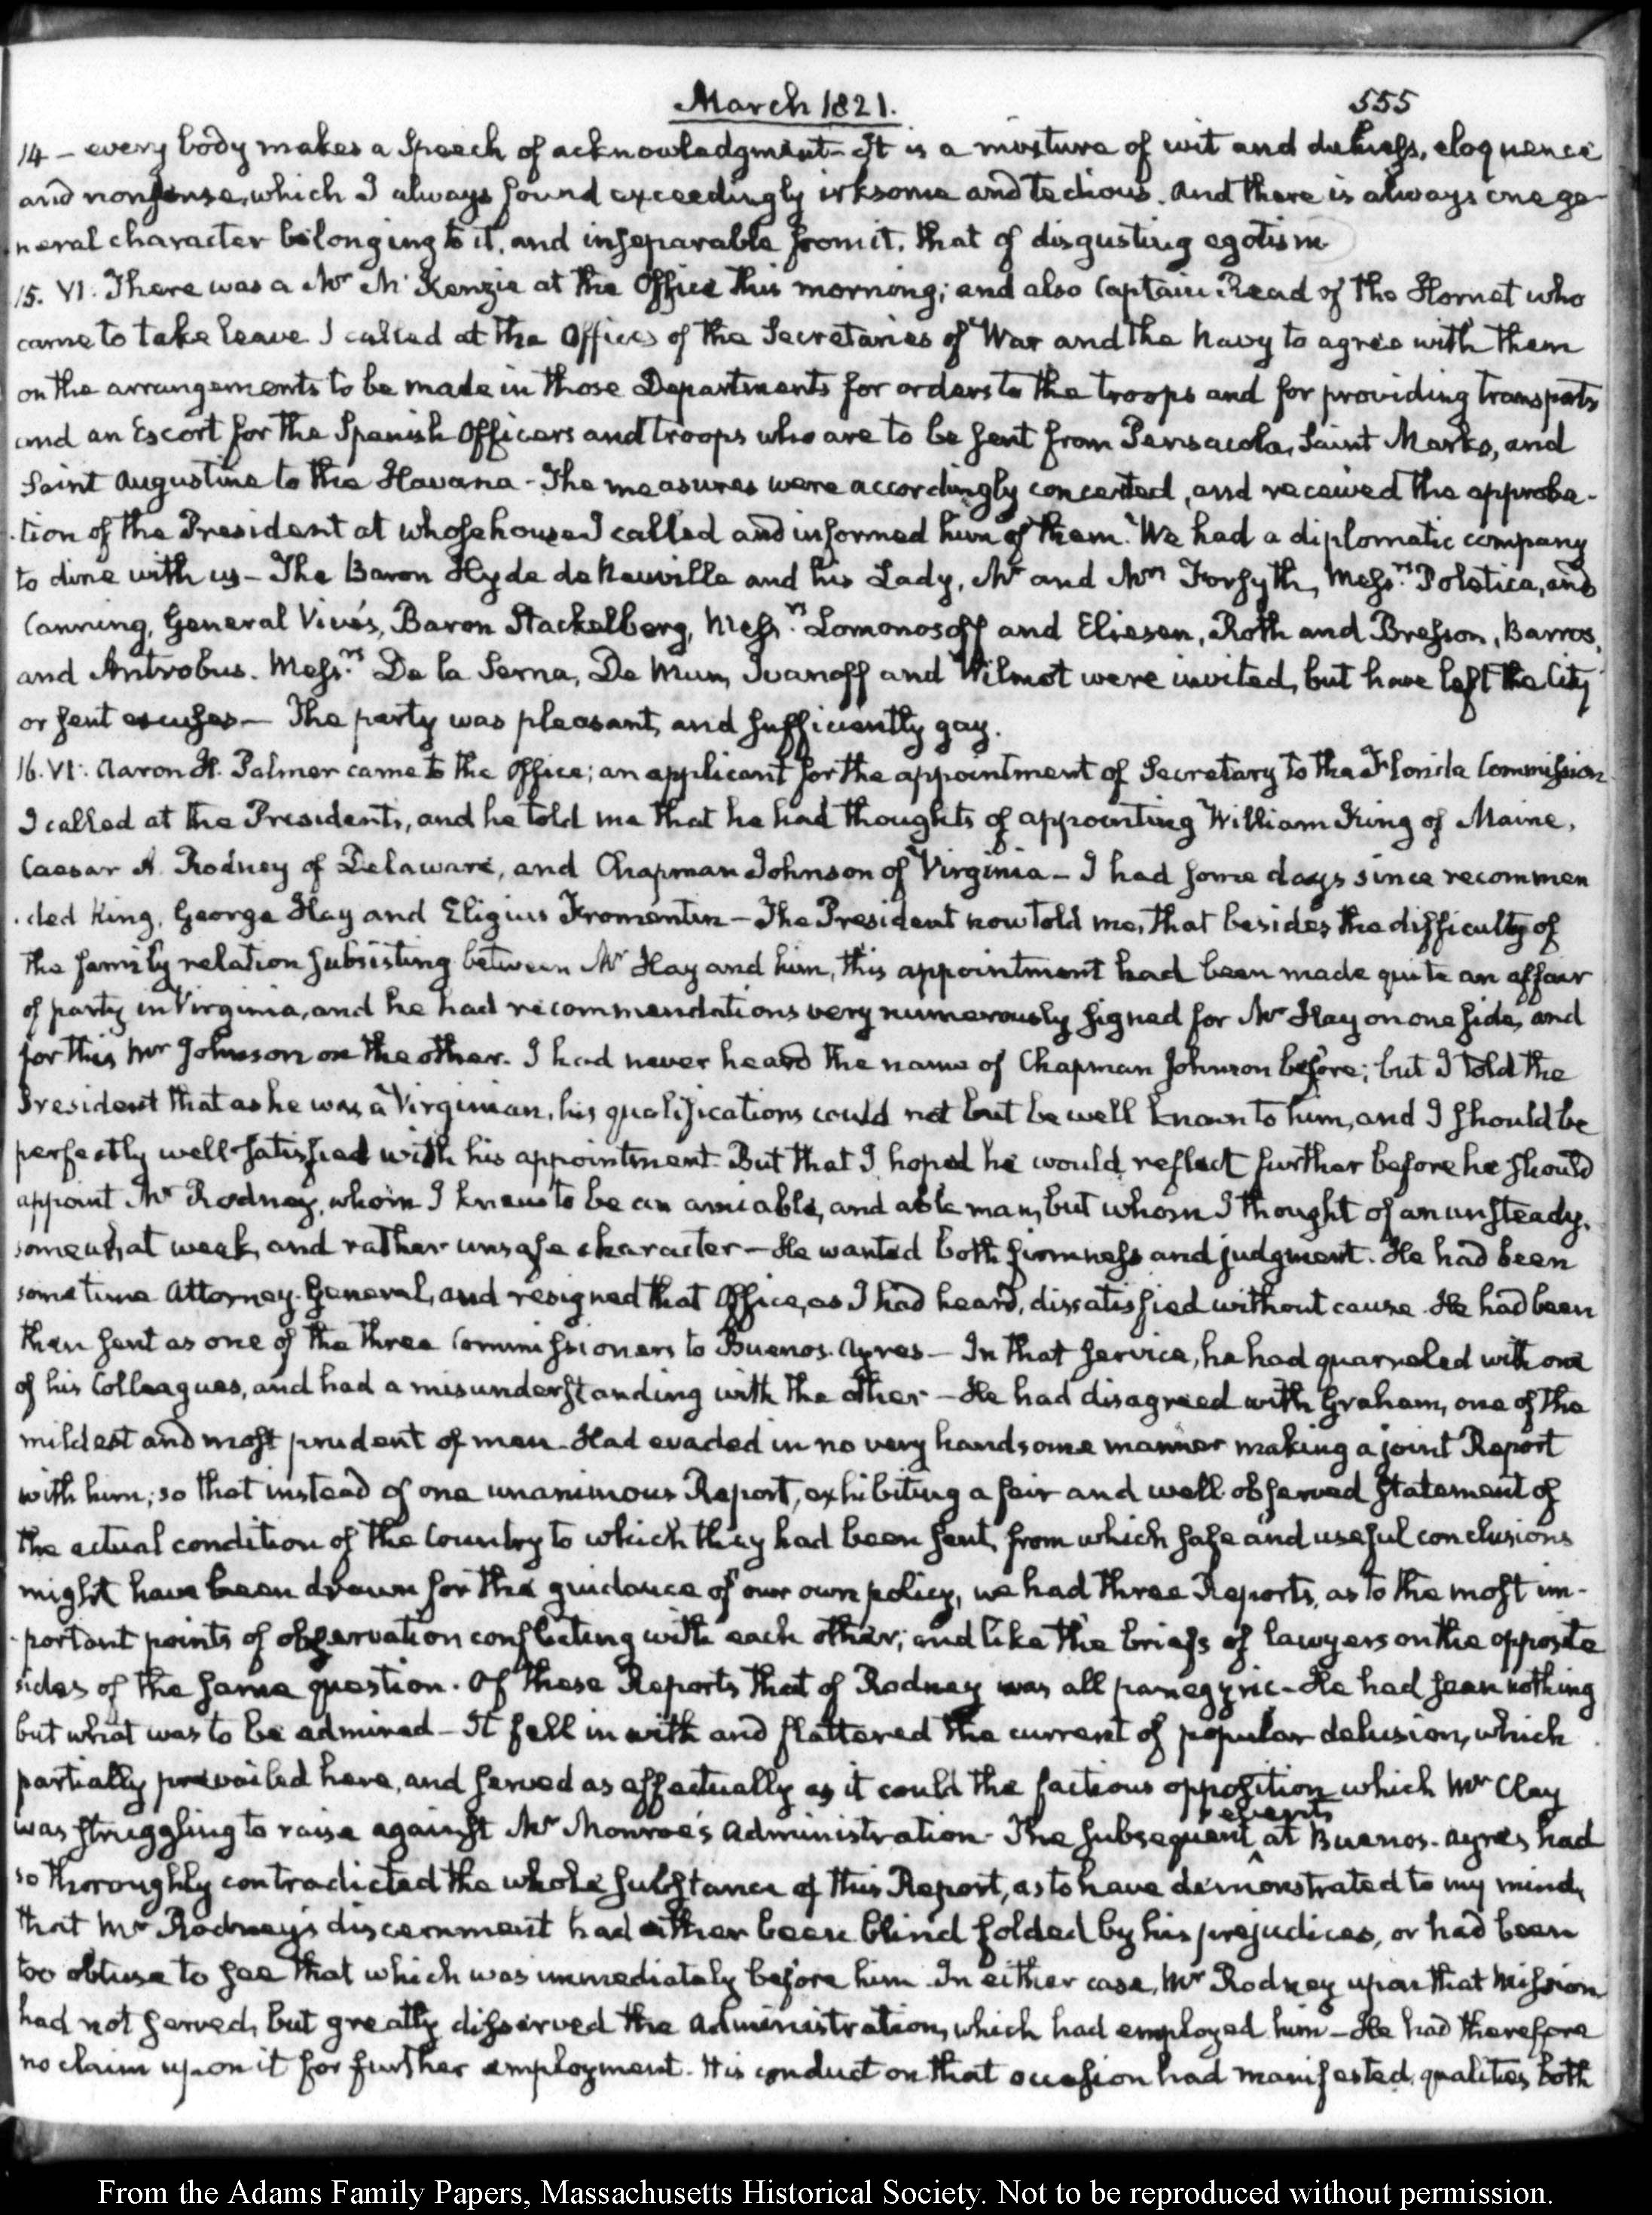 March 1821.
555
14 - every body makes a speech of acknowledgment - It is a mixture of wit and dulness, eloquence
and nonsense, which I always found exceedingly irksome and tedious. And there is always one ge-
neral character belonging to it, and inseparable from it, that of disgusting egotism.
15. VI. There was a Mr McKenzie at the Office this morning; and also Captain Read of the Hornet who
came to take leave I called at the Offices of the Secretaries of War and the Navy to agree with them
on the arrangements to be made in those Departments for orders to the troops and for providing transports
and an Escort for the Spanish Officers and troops who are to be sent from Pensacola, Saint Marks, and
Saint Augustine to the Havana - The measures were accordingly concerted, and received the approba-
-tion of the President at whose house I called and informed him of them. We had a diplomatic company
to dine with us - The Baron Hyde de Neuville and his Lady, Mr and Mrs Forsyth, Messrs Poletica, and
Canning, General Vivés, Baron Stackelberg, Messrs Lomonosoff and Eliesen, Roth and Bresson, Barros,
and Antrobus. Messrs De la Serna, De Mun, Ivanoff and Wilmot were invited, but have left the City
or sent excuses - The party was pleasant, and sufficiently gay.
16. VI. Aaron H. Palmer came to the Office; an applicant for the appointment of Secretary to the Florida Commission
I called at the Presidents, and he told me that he had thoughts of appointing William King of Maine,
Caesar A. Rodney of Delaware, and Chapman Johnson of Virginia - I had some days since recommen
-ded King, George Hay and Eligius Fromentin - The President now told me, that besides the difficulty of
the family relation subsisting between Mr Hay and him, this appointment had been made quite an affair
of party in Virginia, and he had recommendations very numerously signed for Mr Hay on one side, and
for this Mr Johnson on the other. I had never heard the name of Chapman Johnson before; but I told the
President that as he was a Virginian, his qualifications could not but be well known to him, and I should be
perfectly well satisfied with his appointment. But that I hoped he would reflect further before he should
appoint Mr Rodney, whom I knew to be an amiable, and able man, but whom I thought of an unsteady,
somewhat weak, and rather unsafe character - He wanted both firmness and judgment. He had been
some time Attorney-General, and resigned that Office, as I had heard, dissatisfied without cause. He had been
then sent as one of the three Commissioners to Buenos-Ayres - In that service, he had quarreled with one
of his Colleagues, and had a misunderstanding with the other - He had disagreed with Graham, one of the
mildest and most prudent of men. Had evaded in no very handsome manner making a joint Report
with him; so that instead of one unanimous Report, exhibiting a fair and well observed statement of
the actual condition of the Country to which they had been sent, from which safe and useful conclusions
might have been drawn for the guidance of our own policy, we had three Reports, as to the most im-
-portant points of observation conflicting with each other; and like the briefs of lawyers on the opposite
sides of the same question. Of these Reports that of Rodney was all panegyric - He had seen nothing
but what was to be admired - It fell in with and flattered the current of popular delusion, which
partially prevailed here, and served as effectually as it could the factious opposition which Mr Clay
was struggling to raise against Mr Monroe's Administration - The subsequent events at Buenos-Ayres had
so thoroughly contradicted the whole substance of this Report, as to have demonstrated to my mind,
that Mr Rodney's discernment had either been blind folded by his prejudices, or had been
too obtuse to see that which was immediately before him. In either case, Mr Rodney upon that Mission
had not served, but greatly disserved the Administration, which had employed him - He had therefore
no claim upon it for further employment. His conduct on that occasion had manifested, qualities both
From the Adams Family Papers, Massachusetts Historical Society. Not to be reproduced without permission.